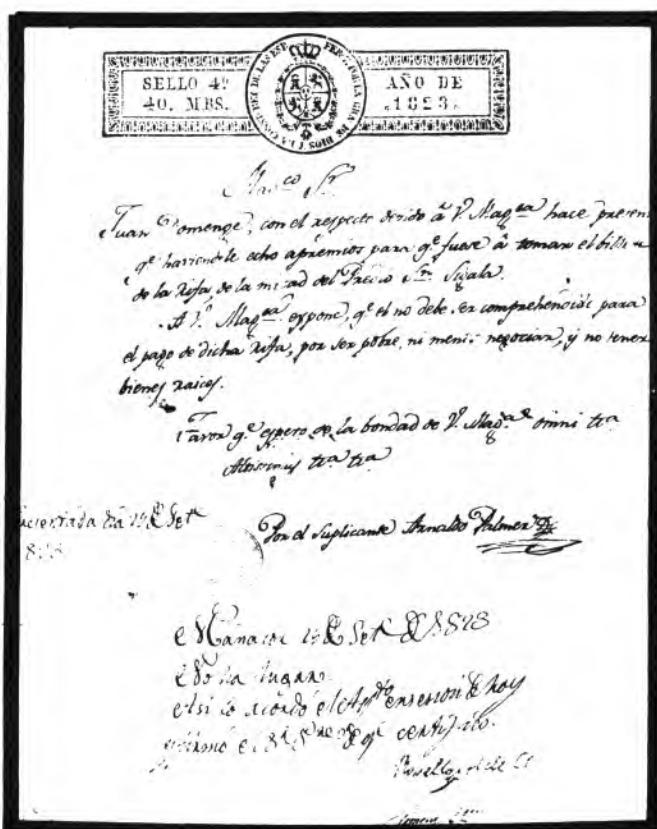 SELLO 4º
40. MRS.
AÑO DE
1823.
Magco Sr
Juan Domenge, con el respecto devido â V. Magsa hace presen
qe. haviendole echo apremios para qe. fuese â tomar el bille
de la Rifa, de la mitad del Predio Sn.
A V. Magsa expone, qe. el no debe ser comprehendido para
el pago de dicha rifa, por ser pobre, ni menos negociar, y no tener
bienes raices.
Favor qe. espero de la bondad de V. Magsa omni tra
Altissimus tra tra
Set.
Por el Suplicante Arnaldo Palmer
Manacor Set. 1823
No ha lugar
Asi lo acordó el Aymto en sesion de hoy
firmó el Sr. de qe. certifico.